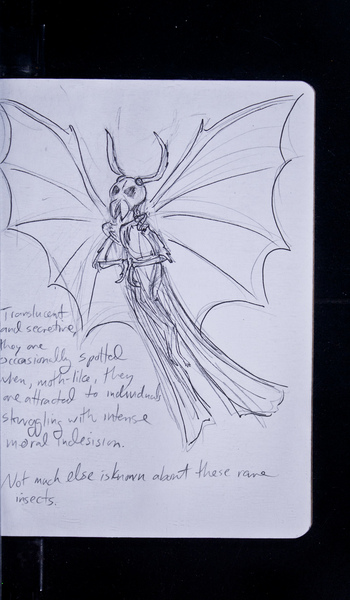 Translucent
and secretive,
they are
occasionally spotted
when, moth-like, they
are attracted to individuals
struggling with intense
moral indesision.
Not much else is known about these rare
insects.